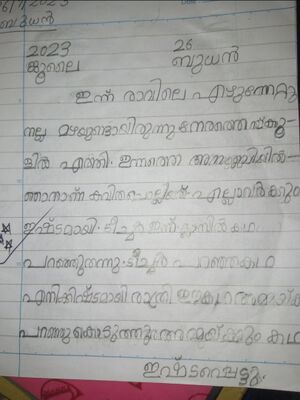 26/7/2023
ബുധൻ
2023 26
ജൂലൈ ബുധൻ
ഇന്ന് രാവിലെ എഴുന്നേറ്റു
നല്ല മഴയുണ്ടായിരുന്നു നേരത്തെ സ്ക്കൂ-
ളിൽ എത്തി. ഇന്നത്തെ അസംബ്ലിയിൽ-
ഞാനാണ് കവിത ചൊല്ലിയത്. എല്ലാവർക്കും
ഇഷ്ടമായി. ടീച്ചർ ഇന്ന് ക്ലാസിൽ കഥ
പറഞ്ഞുതന്നു. ടീച്ചർ പറഞ്ഞ കഥ
എനിക്കിഷ്ടമായി രാത്രി ഈ കഥ അമ്മയ്ക്ക്
പറഞ്ഞു കൊടുത്തു അമ്മയ്ക്കും കഥ
ഇഷ്ടപ്പെട്ടു.